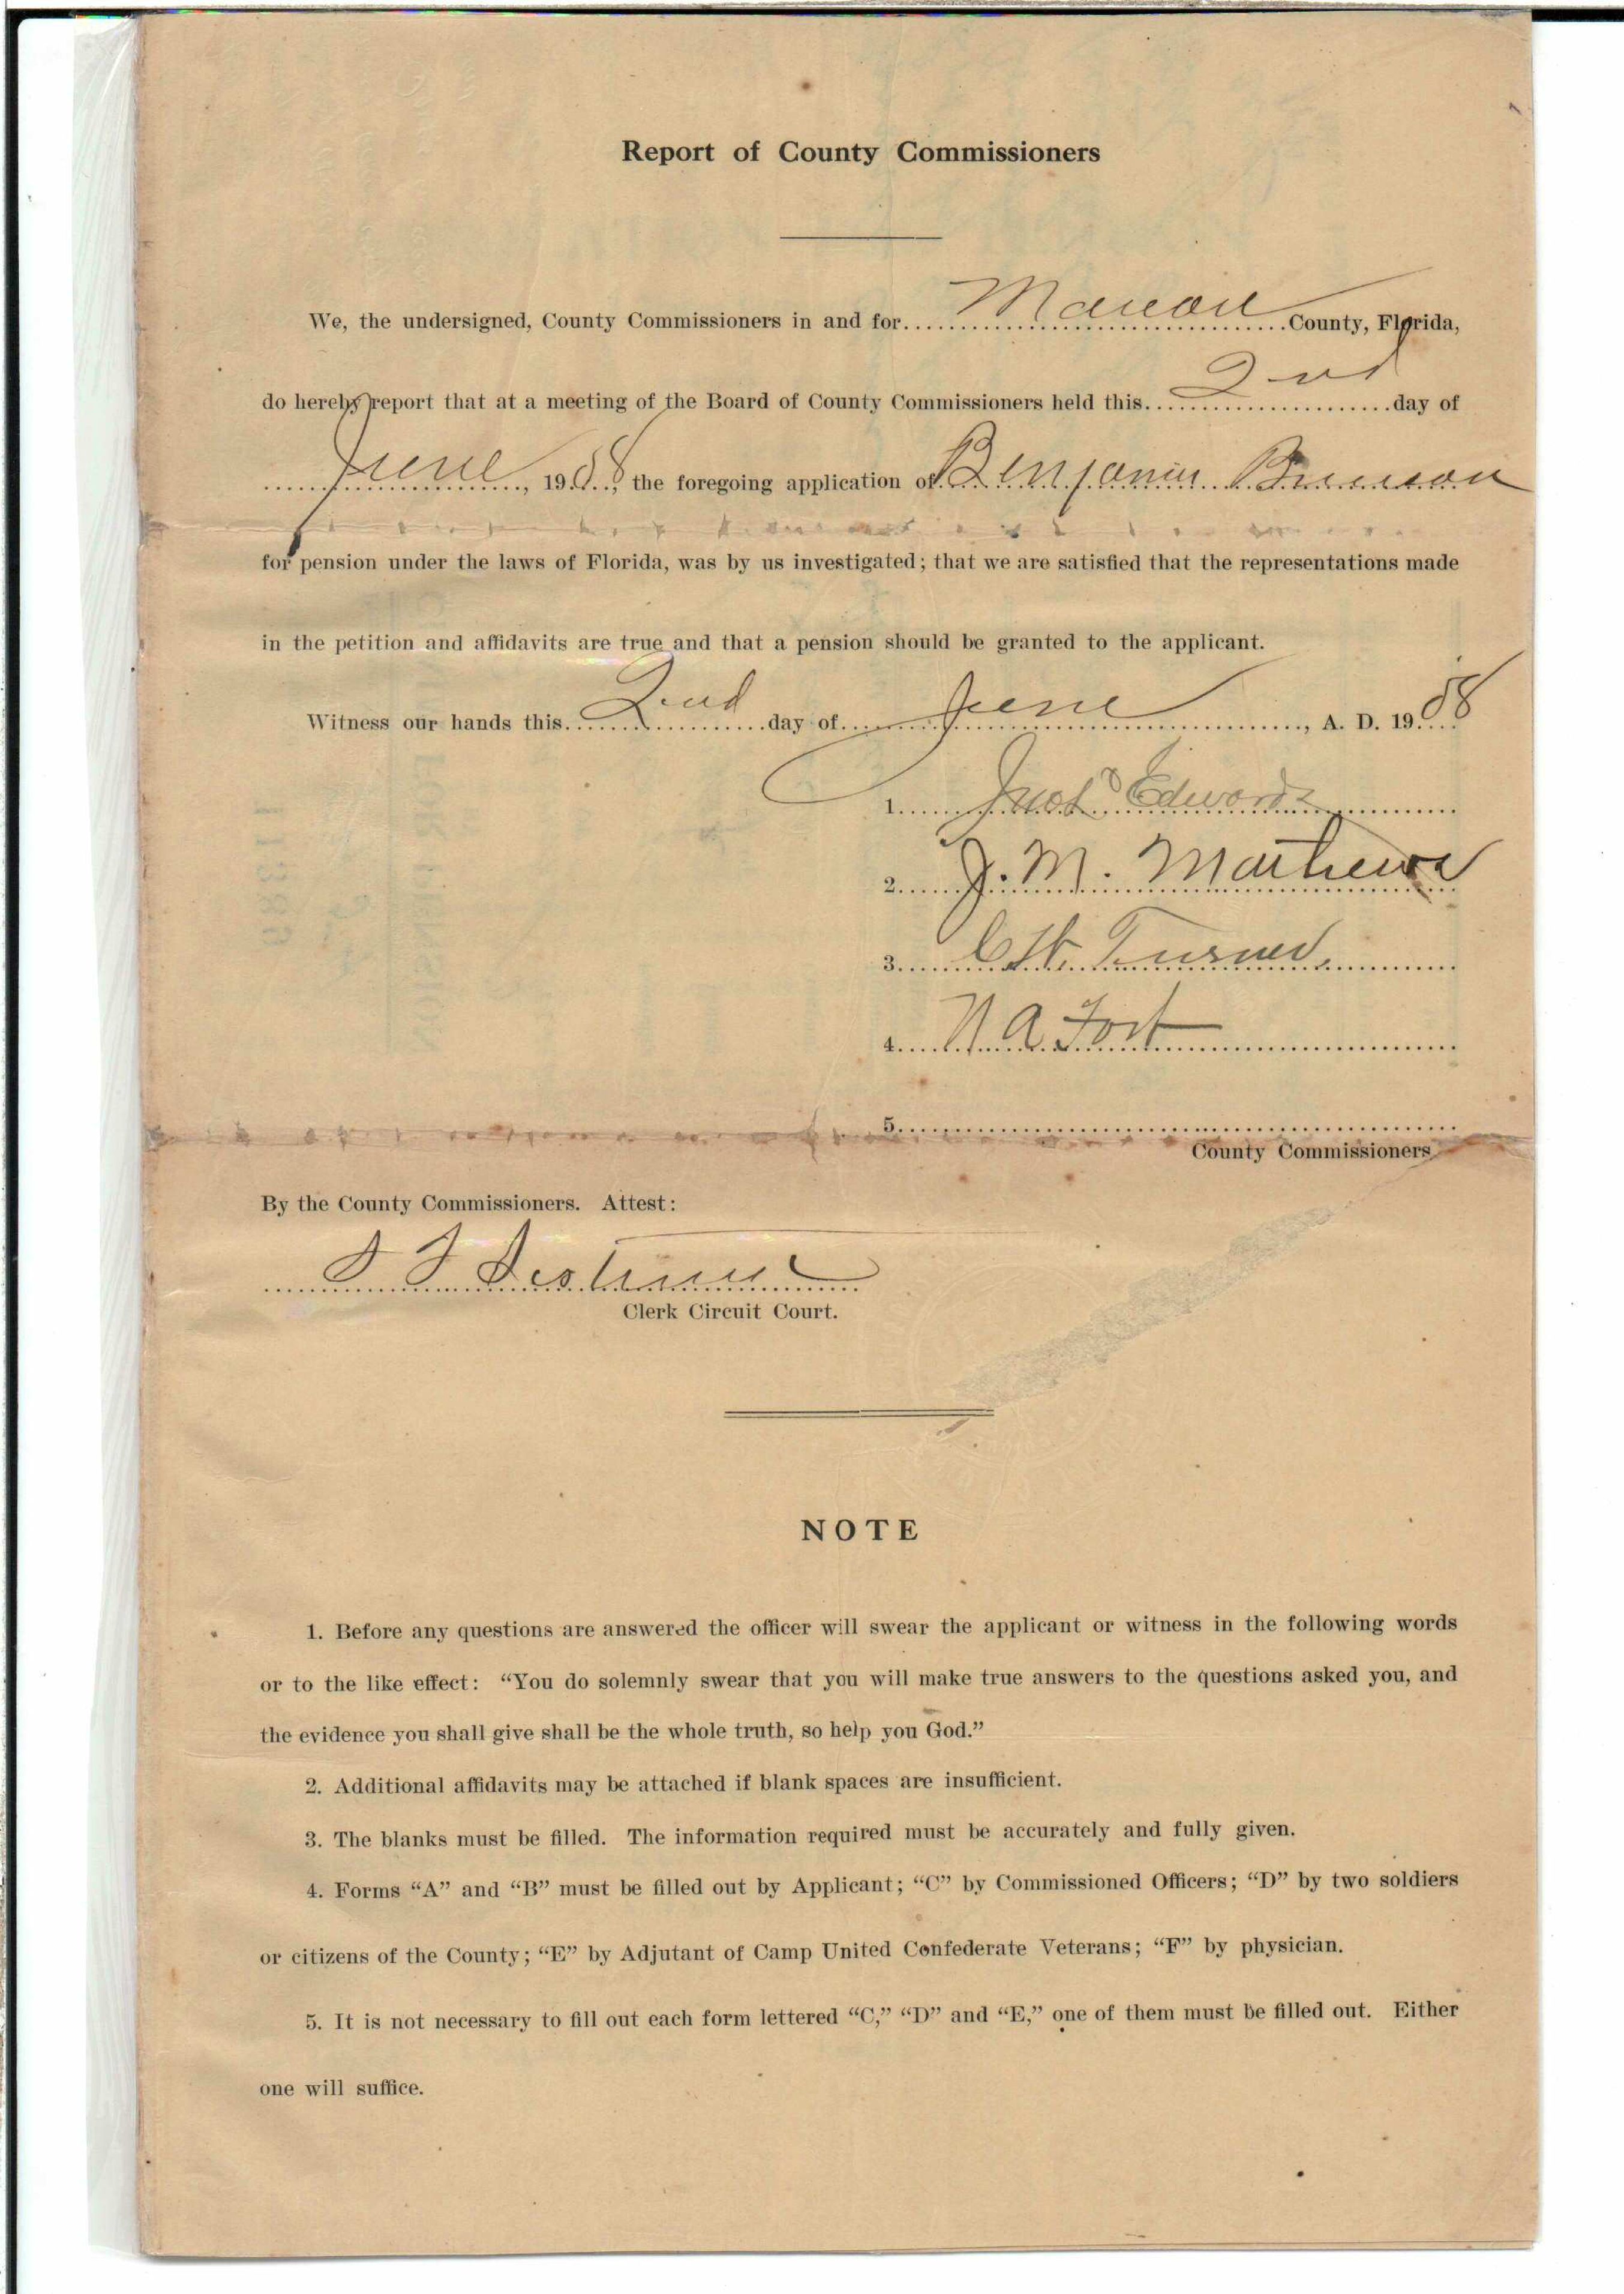 Report of County Commissioners
We, the undersigned, County Commissioners in and for Marion County, Florida,
do hereby report that at a meeting of the Board of County Commissioners held this 2nd day of
June, 1908, the foregoing application of Benjamin Brunson
for pension under the laws of Florida, was by us investigated; that we are satisfied that the representations made
in the petition and affidavits are true and that a pension should be granted to the applicant.
Witness our hands this 2nd day of June, A. D. 1908
1. Edwards
2. J. M. Mathews
3. C. H. Turner
4. N A Fort
5.
County Commissioners
By the County Commissioners. Attest:
S T Sistrunk
Clerk Circuit Court.
NOTE
1. Before any questions are answered the officer will swear the applicant or witness in the following words
or to the like effect: “You do solemnly swear that you will make true answers to the questions asked you, and
the evidence you shall give shall be the whole truth, so help you God.”
2. Additional affidavits may be attached if blank spaces are insufficient.
3. The blanks must be filled. The information required must be accurately and fully given.
4. Forms “A” and “B” must be filled out by Applicant; “C” by Commissioned Officers; “D” by two soldiers
or citizens of the County; “E” by Adjutant of Camp United Confederate Veterans; “F” by physician.
5. It is not necessary to fill out each form lettered “C,” “D” and “E,” one of them must be filled out. Either
one will suffice.